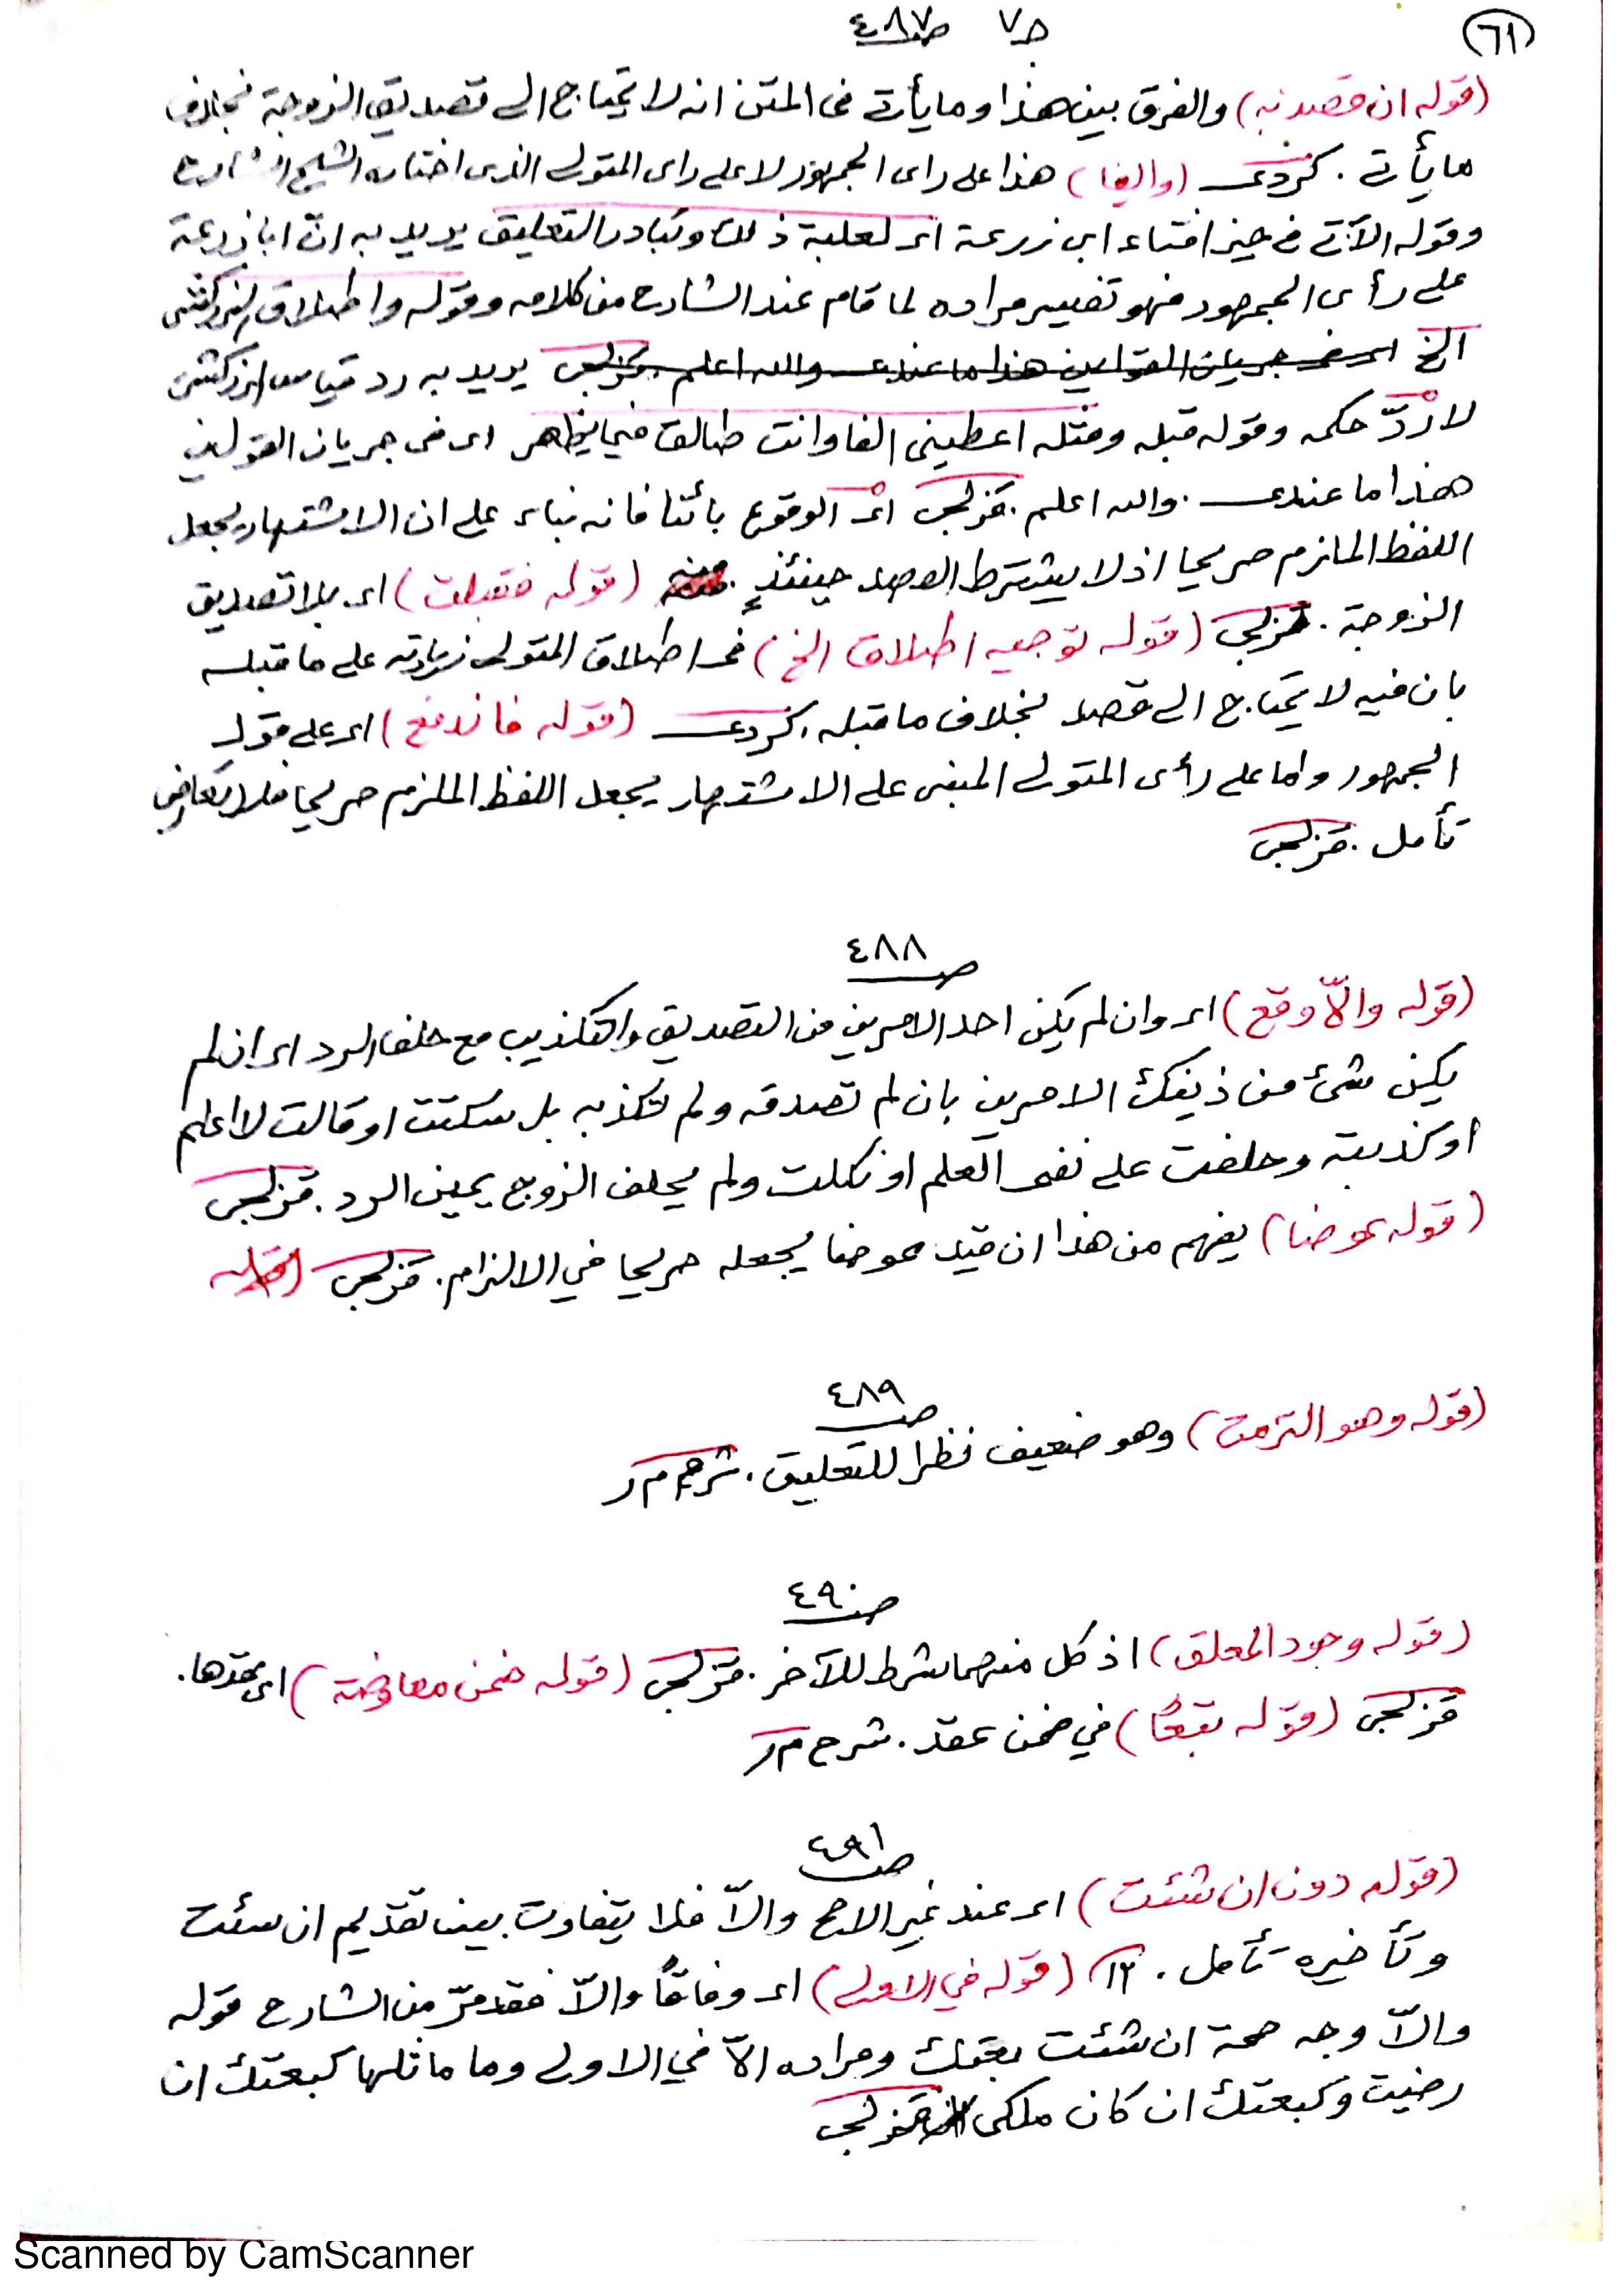 ٦١
ج٧ ص٤٨٧
(قوله ان قصد به) والفرق بين هذا وما يأتى فى المتن انه لا يحتاج الى تصديق الزوجة بخلاف
ما يأتى . كردى (والفا) هذا على راى الجمهور لا على راى المتولى الذى اختاره الشيخ الشارح
وقوله الآتى فى حيز افتاء ابى زرعة اى لغلبة ذلك وتبادر التعليق يريد به ان ابا زرعة
على رأى الجمهور فهو تفسير مراده لما قام عند الشارح من كلامه وقوله واطلاق الزركشى
الخ اى فى جريان القولين هذا ما عندى والله اعلم . قزلجى يريد به رد قياس الزركشى
لا ردّ حكمه وقوله قبله ومثله اعطينى الفا وانت طالق فيما يظهر اى فى جريان القولين
هذا ما عندى . والله اعلم . قزلجى اى الوقوع بائنا فانه بناء على ان الاشتهار يجعل
اللفظ الملزم صريحا اذ لا يشترط القصد حينئذٍ . منه (قوله فقبلت) اى بلا تصديق
الزوجة . قزلجى (قوله توجيه اطلاق الخ) فى اطلاق المتولى زيادته على ما قبله
بان فيه لا يحتاج الى قصد بخلاف ما قبله . كردى (قوله فاندفع) اى على قول
الجمهور واما على رأى المتولى المبنى على الاشتهار يجعل اللفظ الملزم صريحا فلا تعارض
تأمل . قزلجى
ص٤٨٨
(قوله والاّ وقع) اى وان لم يكن احد الامرين من التصديق والتكذيب مع حلف الرد اى ان لم
يكن شئ من ذينك الامرين بان لم تصدقه ولم تكذبه بل سكتت او قالت لا اعلم
او كذبته وحلفت على نفى العلم او نكلت ولم يحلف الزوج يمين الرد . قزلجى
(قوله عوضا) يفهم من هذا ان قيد عوضا يجعله صريحا في الالزام . قزلجى (قوله
ص٤٨٩
(قوله وهو التزمت) وهو ضعيف نظرا للتعليق . شرح م ر
ص٤٩٠
(قوله وجود المعلق) اذ كل منهما شرط للآخر . قزلجى (قوله ضمن معاوضة) اى عقدها .
قزلجى (قوله تبعًا) في ضمن عقد . شرح م ر
ص٤٩١
(قوله دون ان شئت) اى عند غير الاصح والاّ فلا يتفاوت بين تقديم ان شئت
وتأخيره تأمل . ١٢ (قوله في الاولى) اى وفاقًا والاّ فقد مرّ من الشارح قوله
والاّ وجه صحة ان شئت بعتك ومراده الاّ في الاولى وما ماثلها كبعتك ان
رضيت وكبعتك ان كان ملكى قزلجى
Scanned by CamScanner